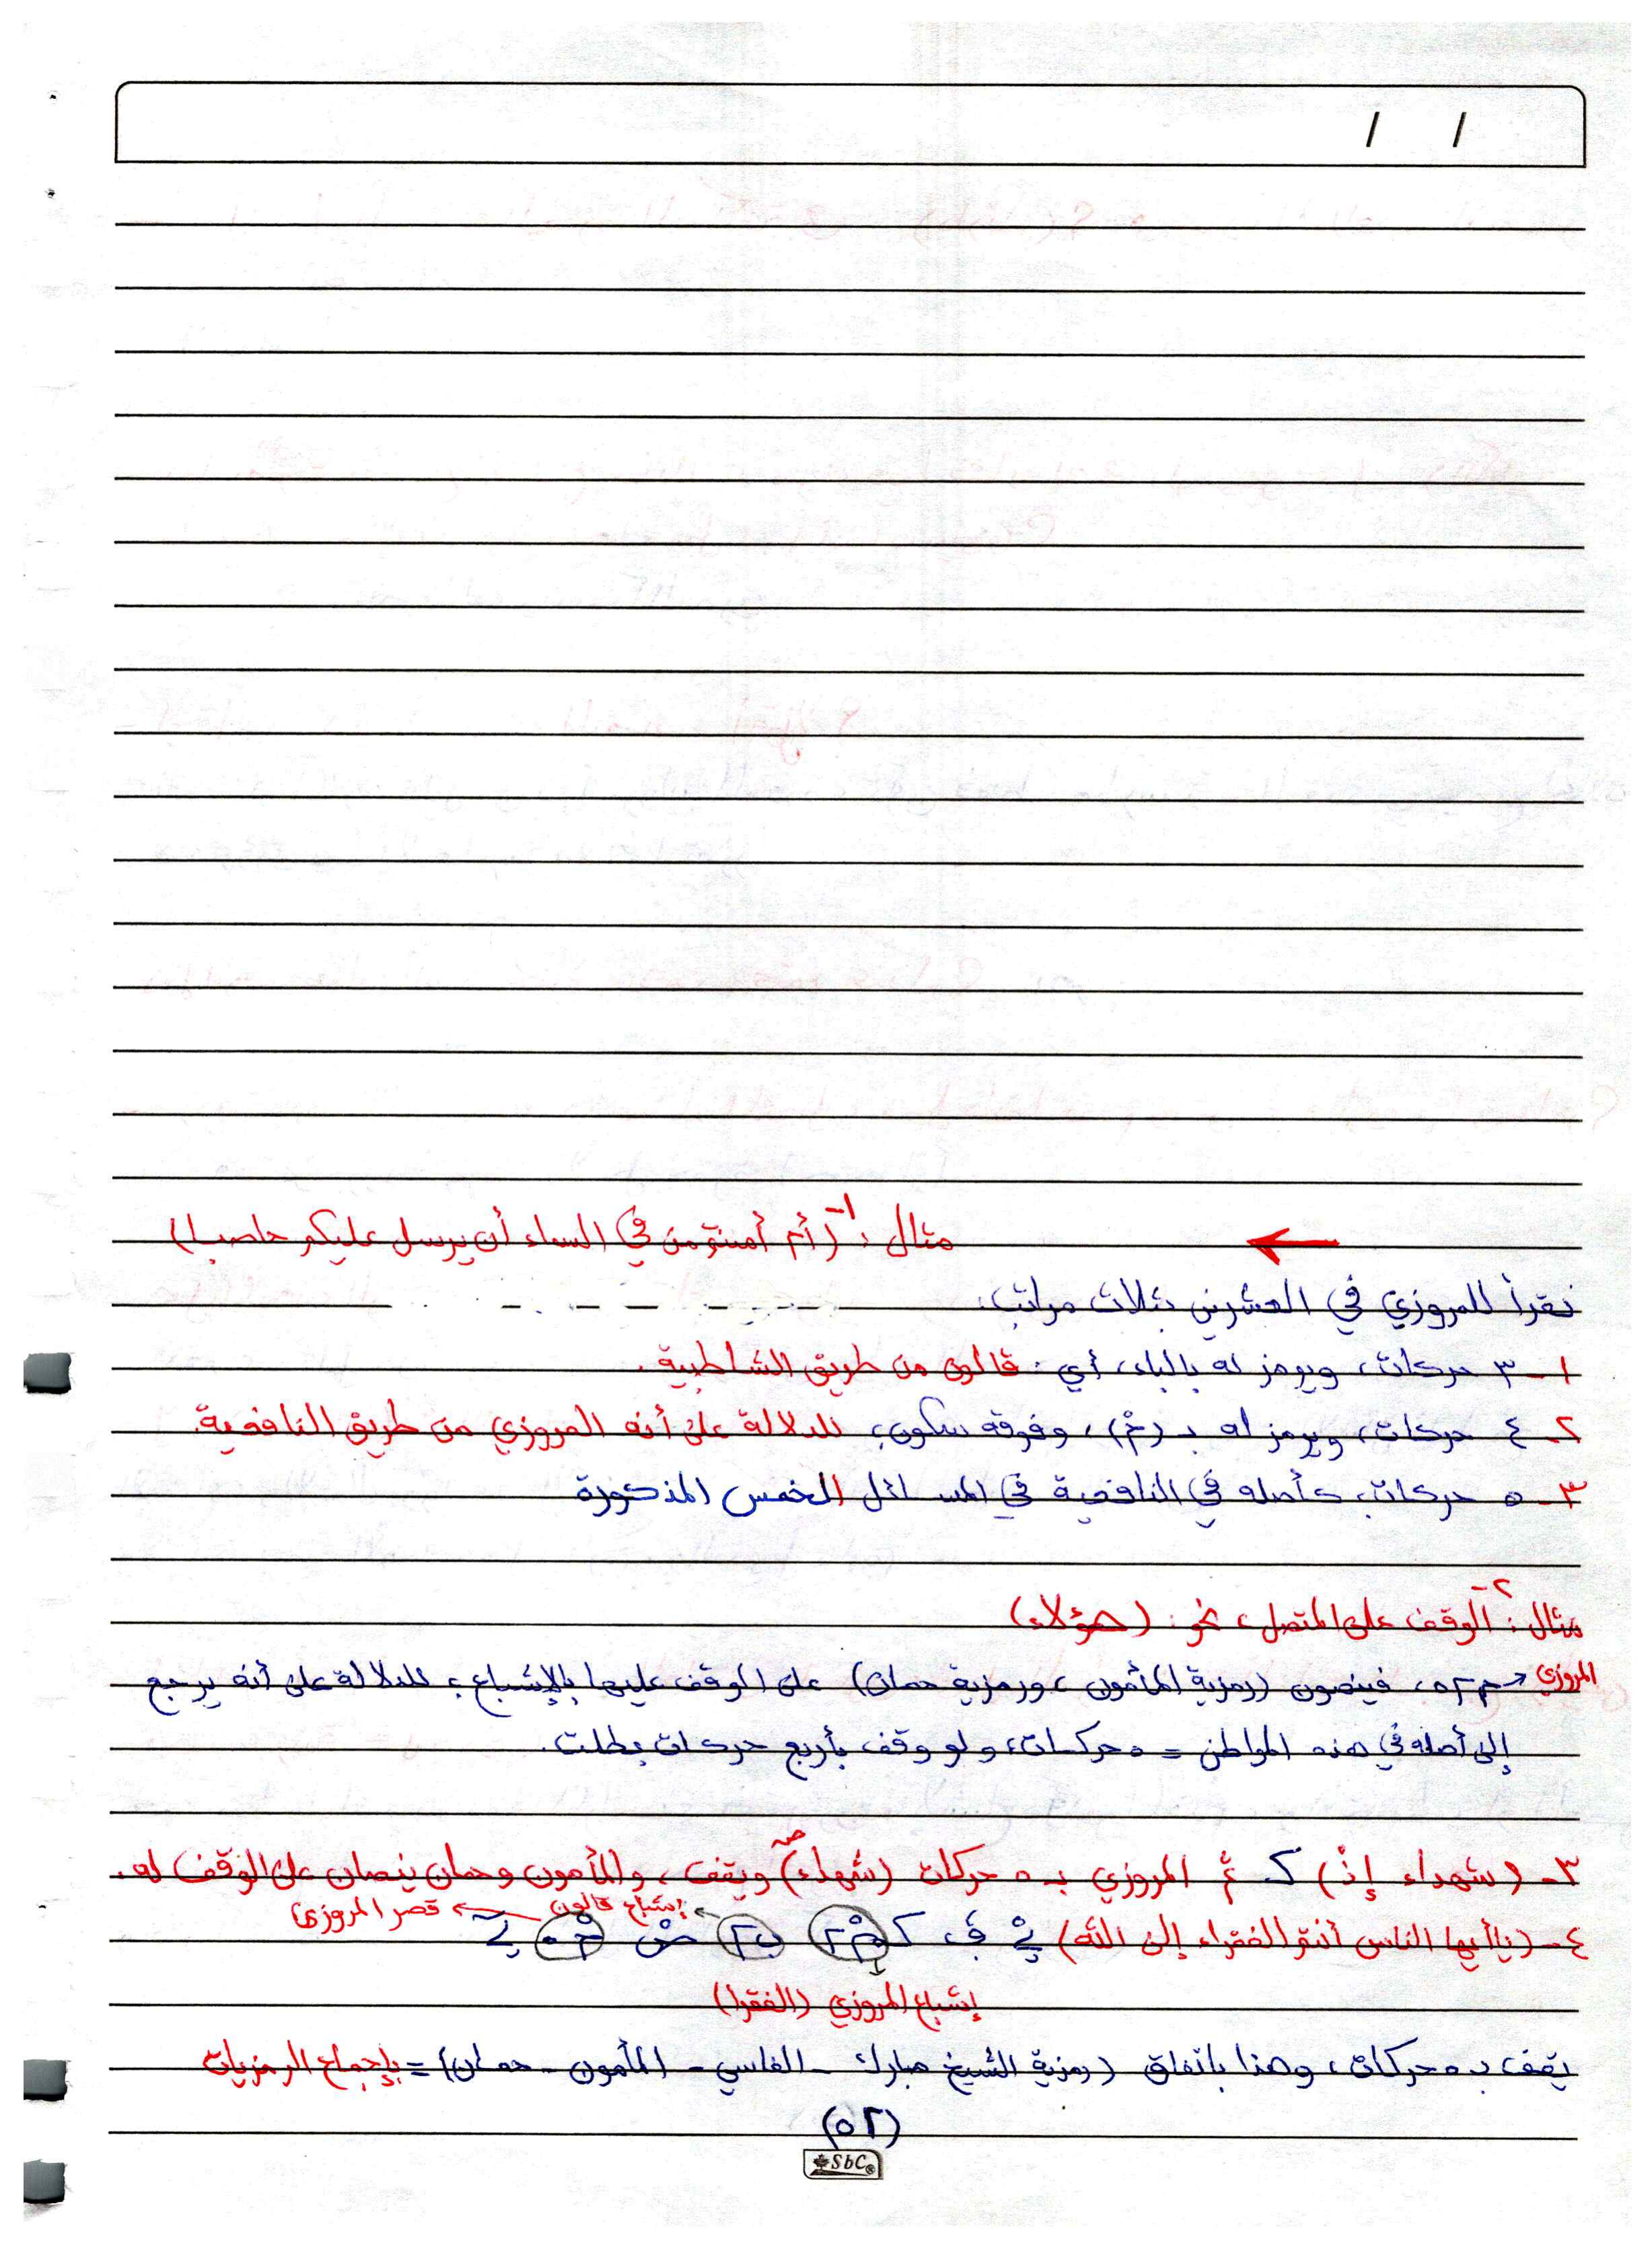 / /
مثال: ١- (أم أمنتم من في السماء أن يرسل عليكم حاصبا)
نقرأ للمروزي في العشرين بثلاث مراتب:
١- ٣ حركات، ويرمز له بالباء، أي: قالون من طريق الشاطبية.
٢- ٤ حركات، ويرمز له بـ (مْ)، وفوقه سكون، للدلالة على أنه المروزي من طريق النافعية.
٣- ٥ حركات، كأصله في النافعية في المسائل الخمس المذكورة
مثال: ٢- الوقف على المتصل، نحو: (هؤلاء)
المروزي ← فينصون (رمزية المأمون، ورمزية حمان) على الوقف عليها بالإشباع، للدلالة على أنه يرجع
إلى أصله في هذه المواطن = ٥ حركات، ولو وقف بأربع حركات بطلت.
٣- (شهداء إذ) المروزي بـ ٥ حركات (شهداء) ويقف، والمأمون وحمان ينصان على الوقف له.
إشباع قالون ← قصر المروزي
٤- (يأيها الناس أنتم الفقراء إلى الله)
إشباع المروزي (الفقرا)
يقف بـ ٥ حركات، وهذا باتفاق (رمزية الشيخ مبارك - الفاسي - المأمون - حمان) = بإجماع الرمزيات
(٥٢)
SbC